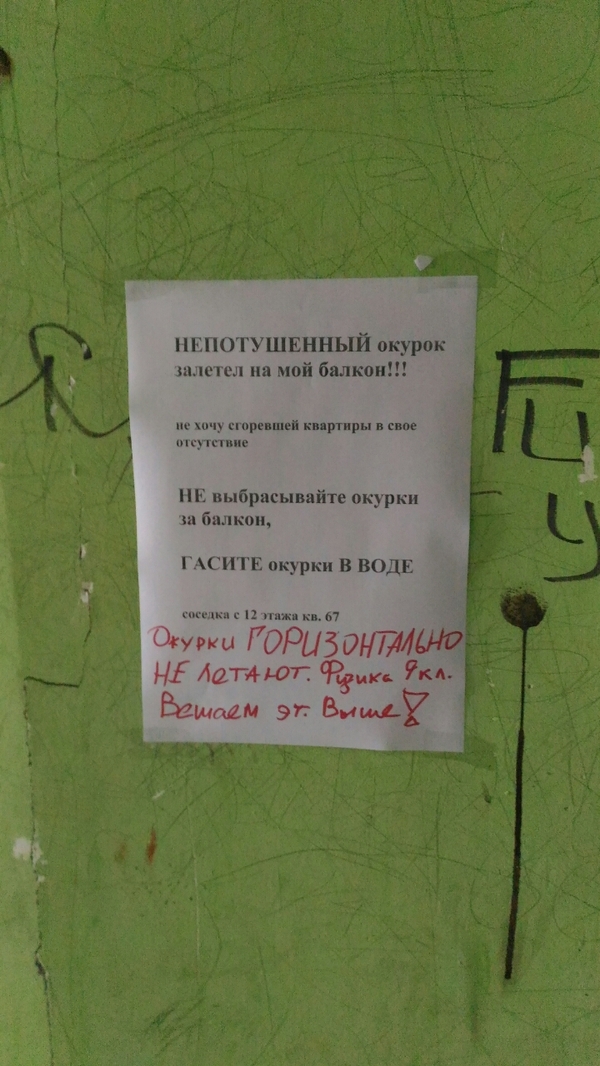 НЕПОТУШЕННЫЙ окурок
залетел на мой балкон!!!
не хочу сгоревшей квартиры в свое
отсутствие
НЕ выбрасывайте окурки
за балкон,
ГАСИТЕ окурки В ВОДЕ
соседка с 12 этажа кв. 67
Окурки ГОРИЗОНТАЛЬНО
НЕ ЛЕТАЮТ. Физика 9 кл.
Вешаем эт. Выше!